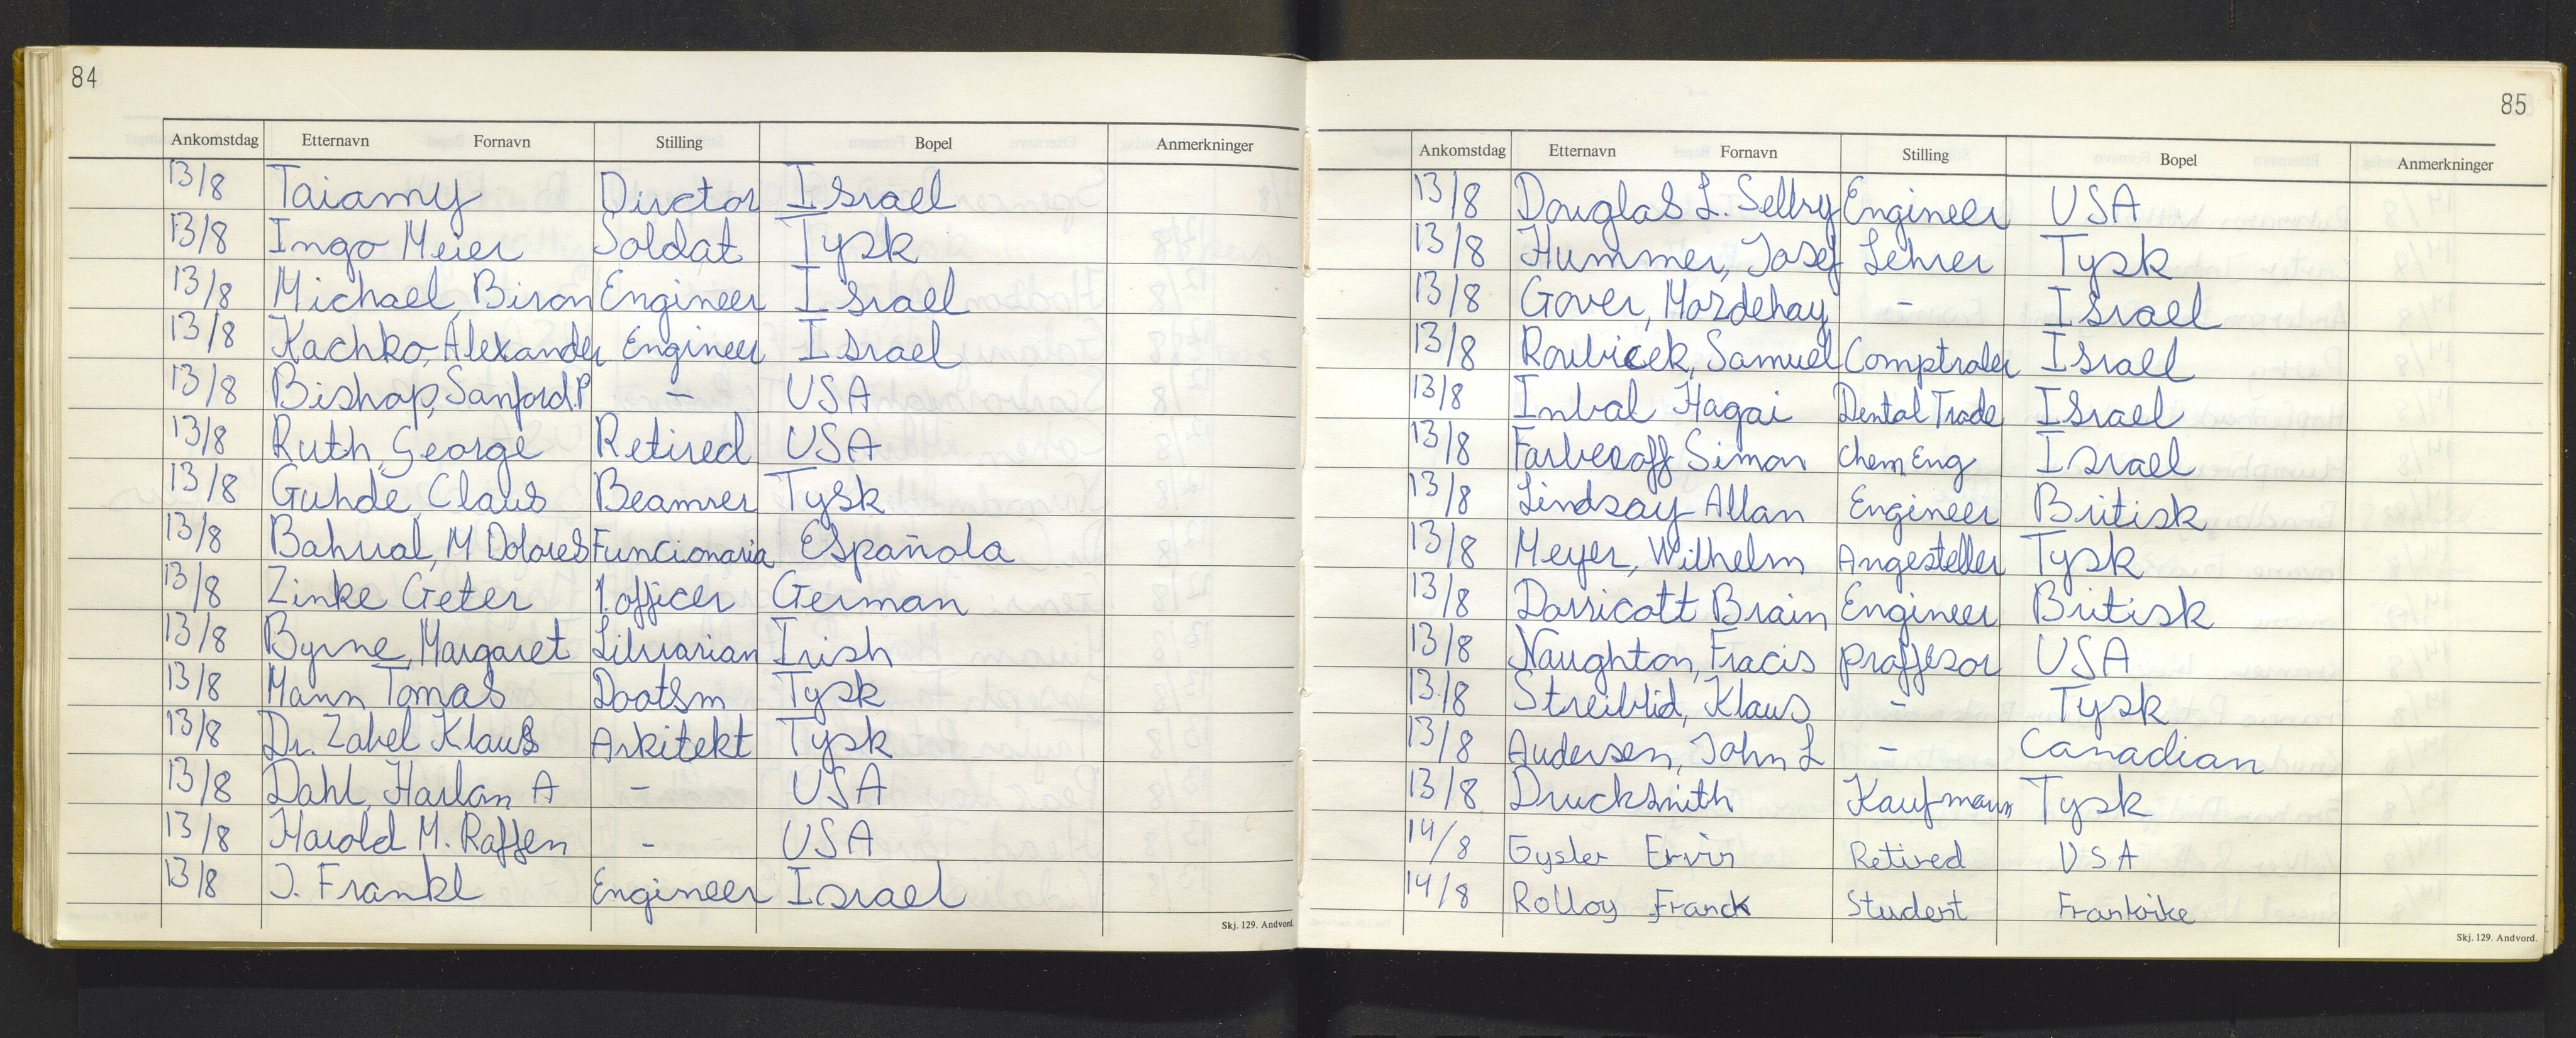 84
Ankomstdag Etternavn Fornavn Stilling Bopel Anmerkninger
13/8 Taiamy Dirctor Israel
13/8 Ingo Meier Soldat Tysk
13/8 Michael, Biron Engineer Israel
13/8 Kachko, Alexander Engineer Israel
13/8 Bishop, Sanford.P - USA
13/8 Ruth, George Retired USA
13/8 Guhde, Claus Beamrer Tysk
13/8 Bahual, M Dolores Funcionaria Española
13/8 Zinke Geter 1.officer German
13/8 Byrne, Margaret Librarian Irish
13/8 Mann Tomas Dootsm Tysk
13/8 Dr. Zabel Klaus Arkitekt Tysk
13/8 Dahl, Harlan A - USA
13/8 Harold M. Raffen - USA
13/8 J. Frankl Engineer Israel
Skj. 129. Andvord.
85
Ankomstdag Etternavn Fornavn Stilling Bopel Anmerkninger
13/8 Douglas L. Selby Engineer USA
13/8 Hummer, Josef Lehrer Tysk
13/8 Gover, Mordehay - Israel
13/8 Roubicek, Samuel Comptroler Israel
13/8 Inbal Hagai Dental Trade Israel
13/8 Farberoff Simon Chem, Eng Israel
13/8 Lindsay Allan Engineer Britisk
13/8 Meyer, Wilhelm Angesteller Tysk
13/8 Darricott Brain Engineer Britisk
13/8 Naughton, Fracis proffesor USA
13/8 Streiblid, Klaus - Tysk
13/8 Andersen, John L - Canadian
13/8 Drucksmith Kaufmann Tysk
14/8 Gysler Ervin Retired USA
14/8 Rolloy Franck Student Frankrike
Skj. 129. Andvord.